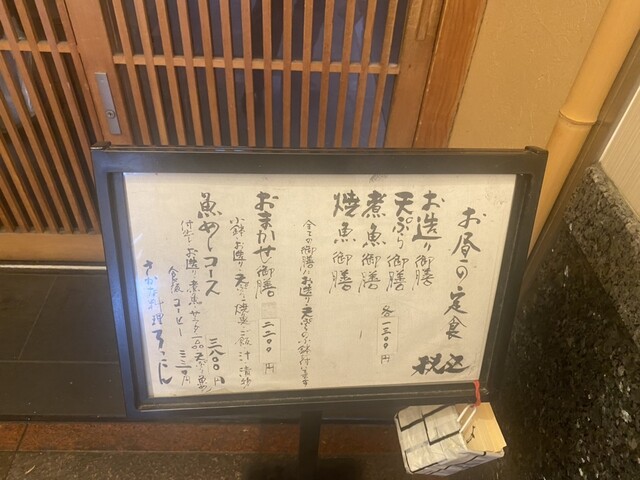 お昼の定食
税込
お造り御膳
天ぷら御膳
煮魚御膳
焼魚御膳
各一三〇〇円
全ての御膳にお造り・天ぷらの小鉢付いてます
おまかせ御膳
二二〇〇円
小鉢 お造り 天ぷら 焼魚 ご飯 汁 漬物
魚めしコース
三八〇〇円
付出し お造り 煮魚 サラダ 一品 天ぷら 魚めし
食後 コーヒー 三三〇円
さかな料理 ろっこん